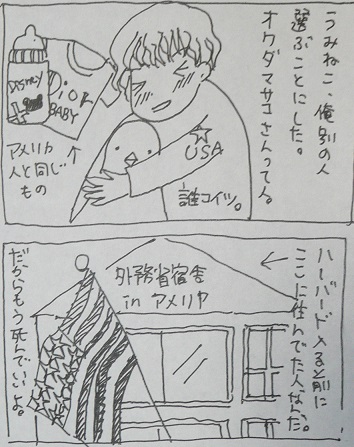 うみねこ、俺別の人
選ぶことにした。
オクダマサコさんって人。
☆
USA
誰コイツ。
DISTNY
Dior
BABY
アメリカ
人と同じ
もの
ハーバード入る前に
ここに住んでた人なんだ。
外務省宿舎
in アメリカ
だからもう死んでいいよ。